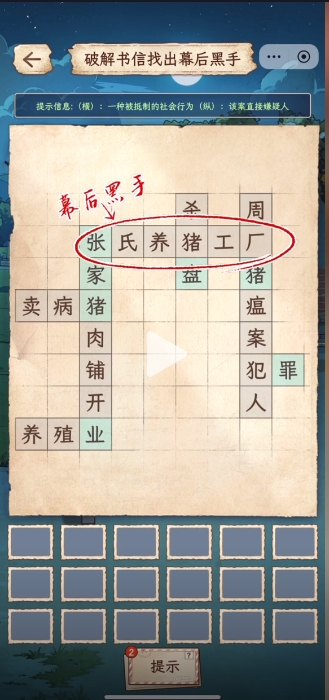 破解书信找出幕后黑手
提示信息:(横):一种被抵制的社会行为(纵):该案直接嫌疑人
幕后黑手
杀 周
张氏养猪工厂
家 盘 猪
卖病猪 瘟
肉 案
铺 犯罪
开 人
养殖业
2
?
提示